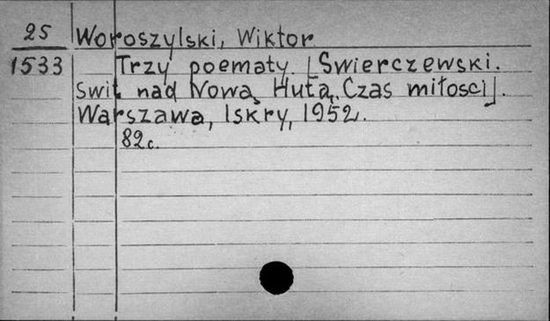 25
Woroszylski, Wiktor
1533
Trzy poematy. [Swierczewski.
Swit nad Nową Hutą. Czas miłosci].
Warszawa, Iskry, 1952.
82c.